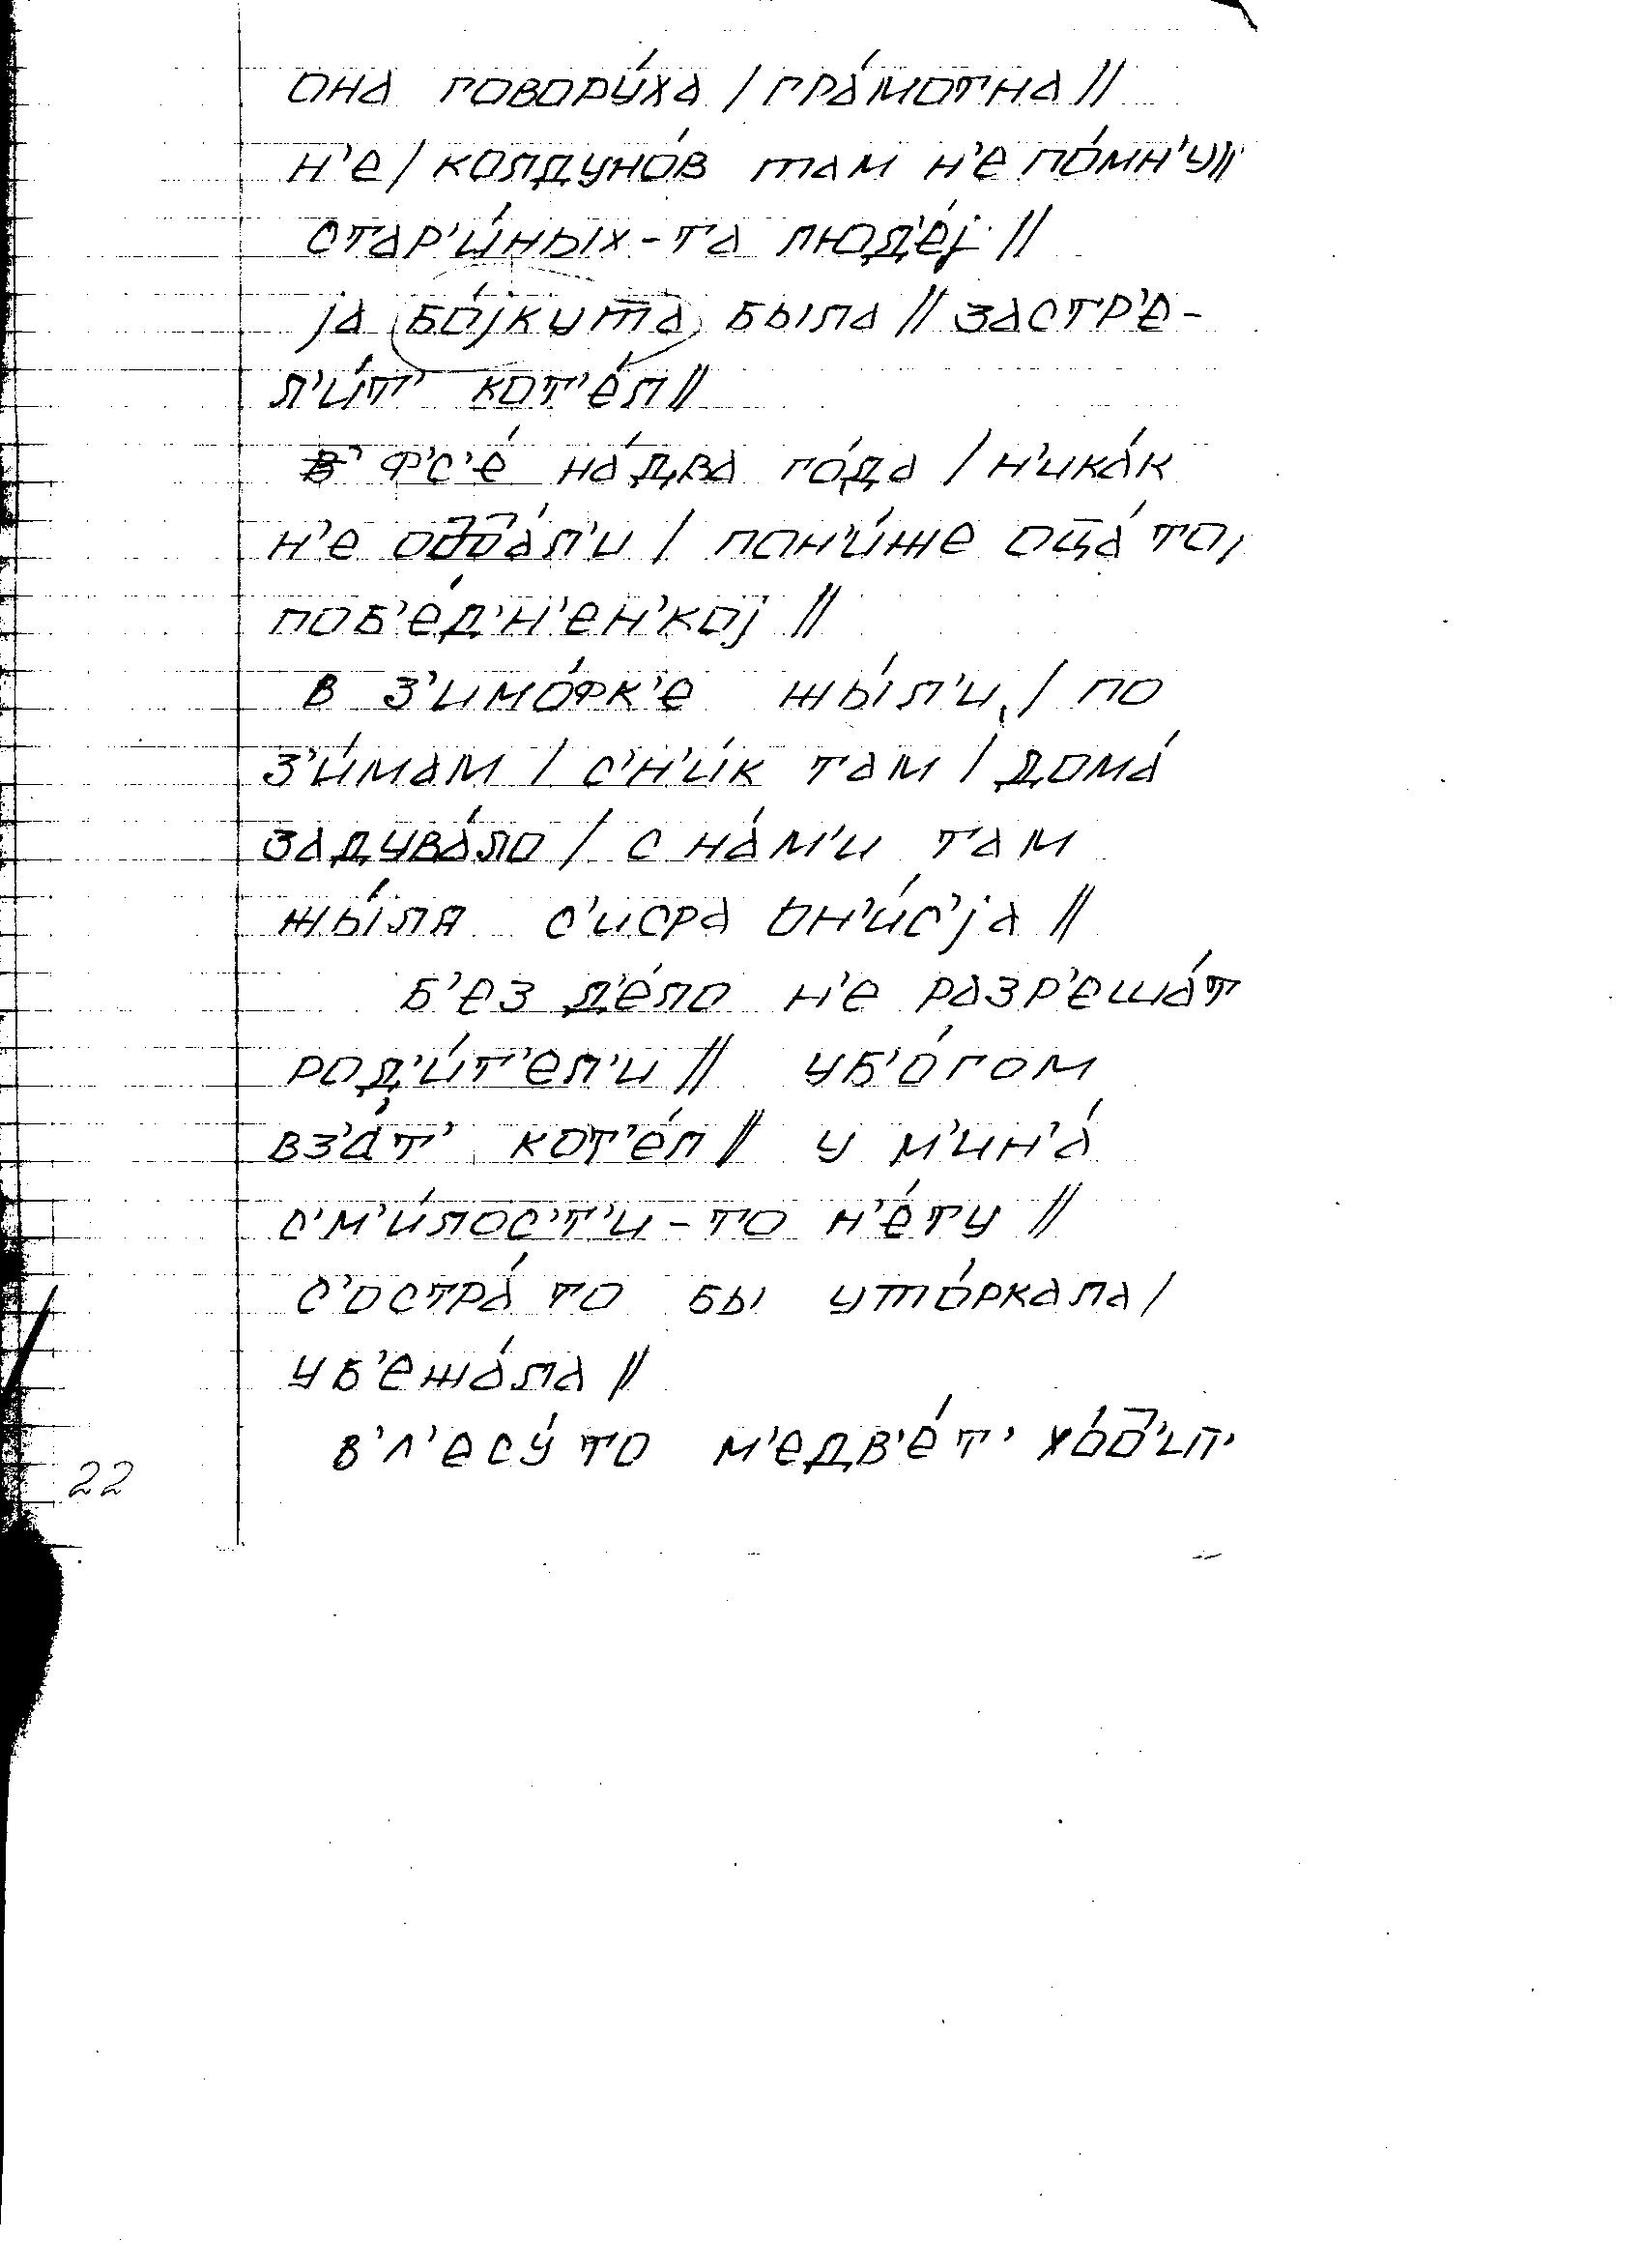 она говору́ха / гра́мотна //
н'е / колдуно́в там н'е по́мн'у //
стар'и́ных-та люд'е́j //
jа бо́jкута была // застр'е-
л'и́т' кот'е́л //
ф'с'е́ на́ два го́да / н'ика́к
н'е оддал'и / пон'и́же оца́ то,
поб'е́д'н'ен'коj //
в з'имо́фк'е жы́л'и, / по
з'и́мам / с'н'и́к там / дома́
задува́ло / с на́м'и там
жы́ля с'исра Он'и́с'jа //
б'ез д'е́ло н'е разр'еша́т
род'и́т'ел'и // уб'о́гом
вз'а́т' кот'е́л // у м'ин'а́
с'м'и́лос'т'и-то н'е́ту //
с'остра́ то бы уто́ркала /
уб'ежа́ла //
в'л'есу́ то м'едв'е́т' хо́д'ит'
22